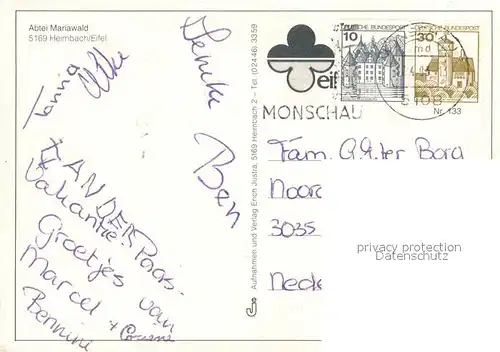 Abtei Mariawald
5169 Heimbach/Eifel
Tannia
Elke
Jenneke
Ben
Vakantie. Paas.
Groetjes van
Marcel +
Bennine
Aufnahmen und Verlag Erich Justra, 5169 Heimbach 2 – Tel. (02446) 3359
eif
MONSCHAU
DEUTSCHE BUNDESPOST
10
DEUTSCHE BUNDESPOST
30
5108
Nr. 133
Fam. G.A. ter Borg
Noor
3035
Nede
privacy protection
Datenschutz